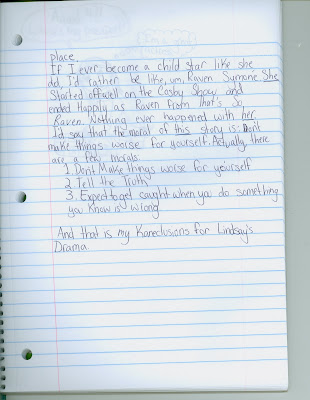 place.
If I ever become a child star like she
did, I'd rather be like, um, Raven Symone. She
Started off well on the Cosby Show and
ended Happily as Raven from That's So
Raven. Nothing ever happened with her.
I'd say that the moral of this story is: Don't
make things worse for yourself. Actually, there
are a few morals:
1. Don't Make things worse for yourself
2. Tell the Truth
3. Expect to get caught when you do something
you know is wrong
And that is my Kaneclusions for Lindsay's
Drama